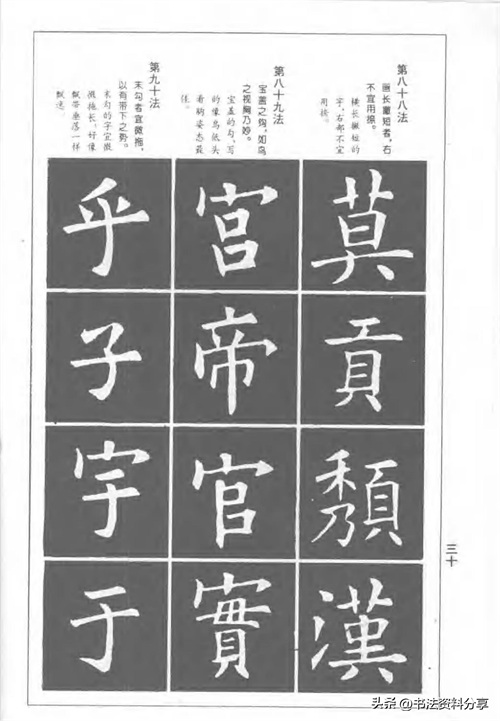 第八十八法
画长撇短者，右
不宜用捺。
横长撇短的
字，右部不宜
用捺。
莫貢頹漢
第八十九法
宝盖之钩，如鸟
之视胸乃妙。
宝盖的勾，写
的像鸟低头
看胸姿态最
佳。
宫帝官實
第九十法
末勾者宜微拖，
以有带下之势。
末勾的字宜微
微拖长，好像
飘带垂落一样
飘逸。
乎子宇于
三十
头条 @书法资料分享